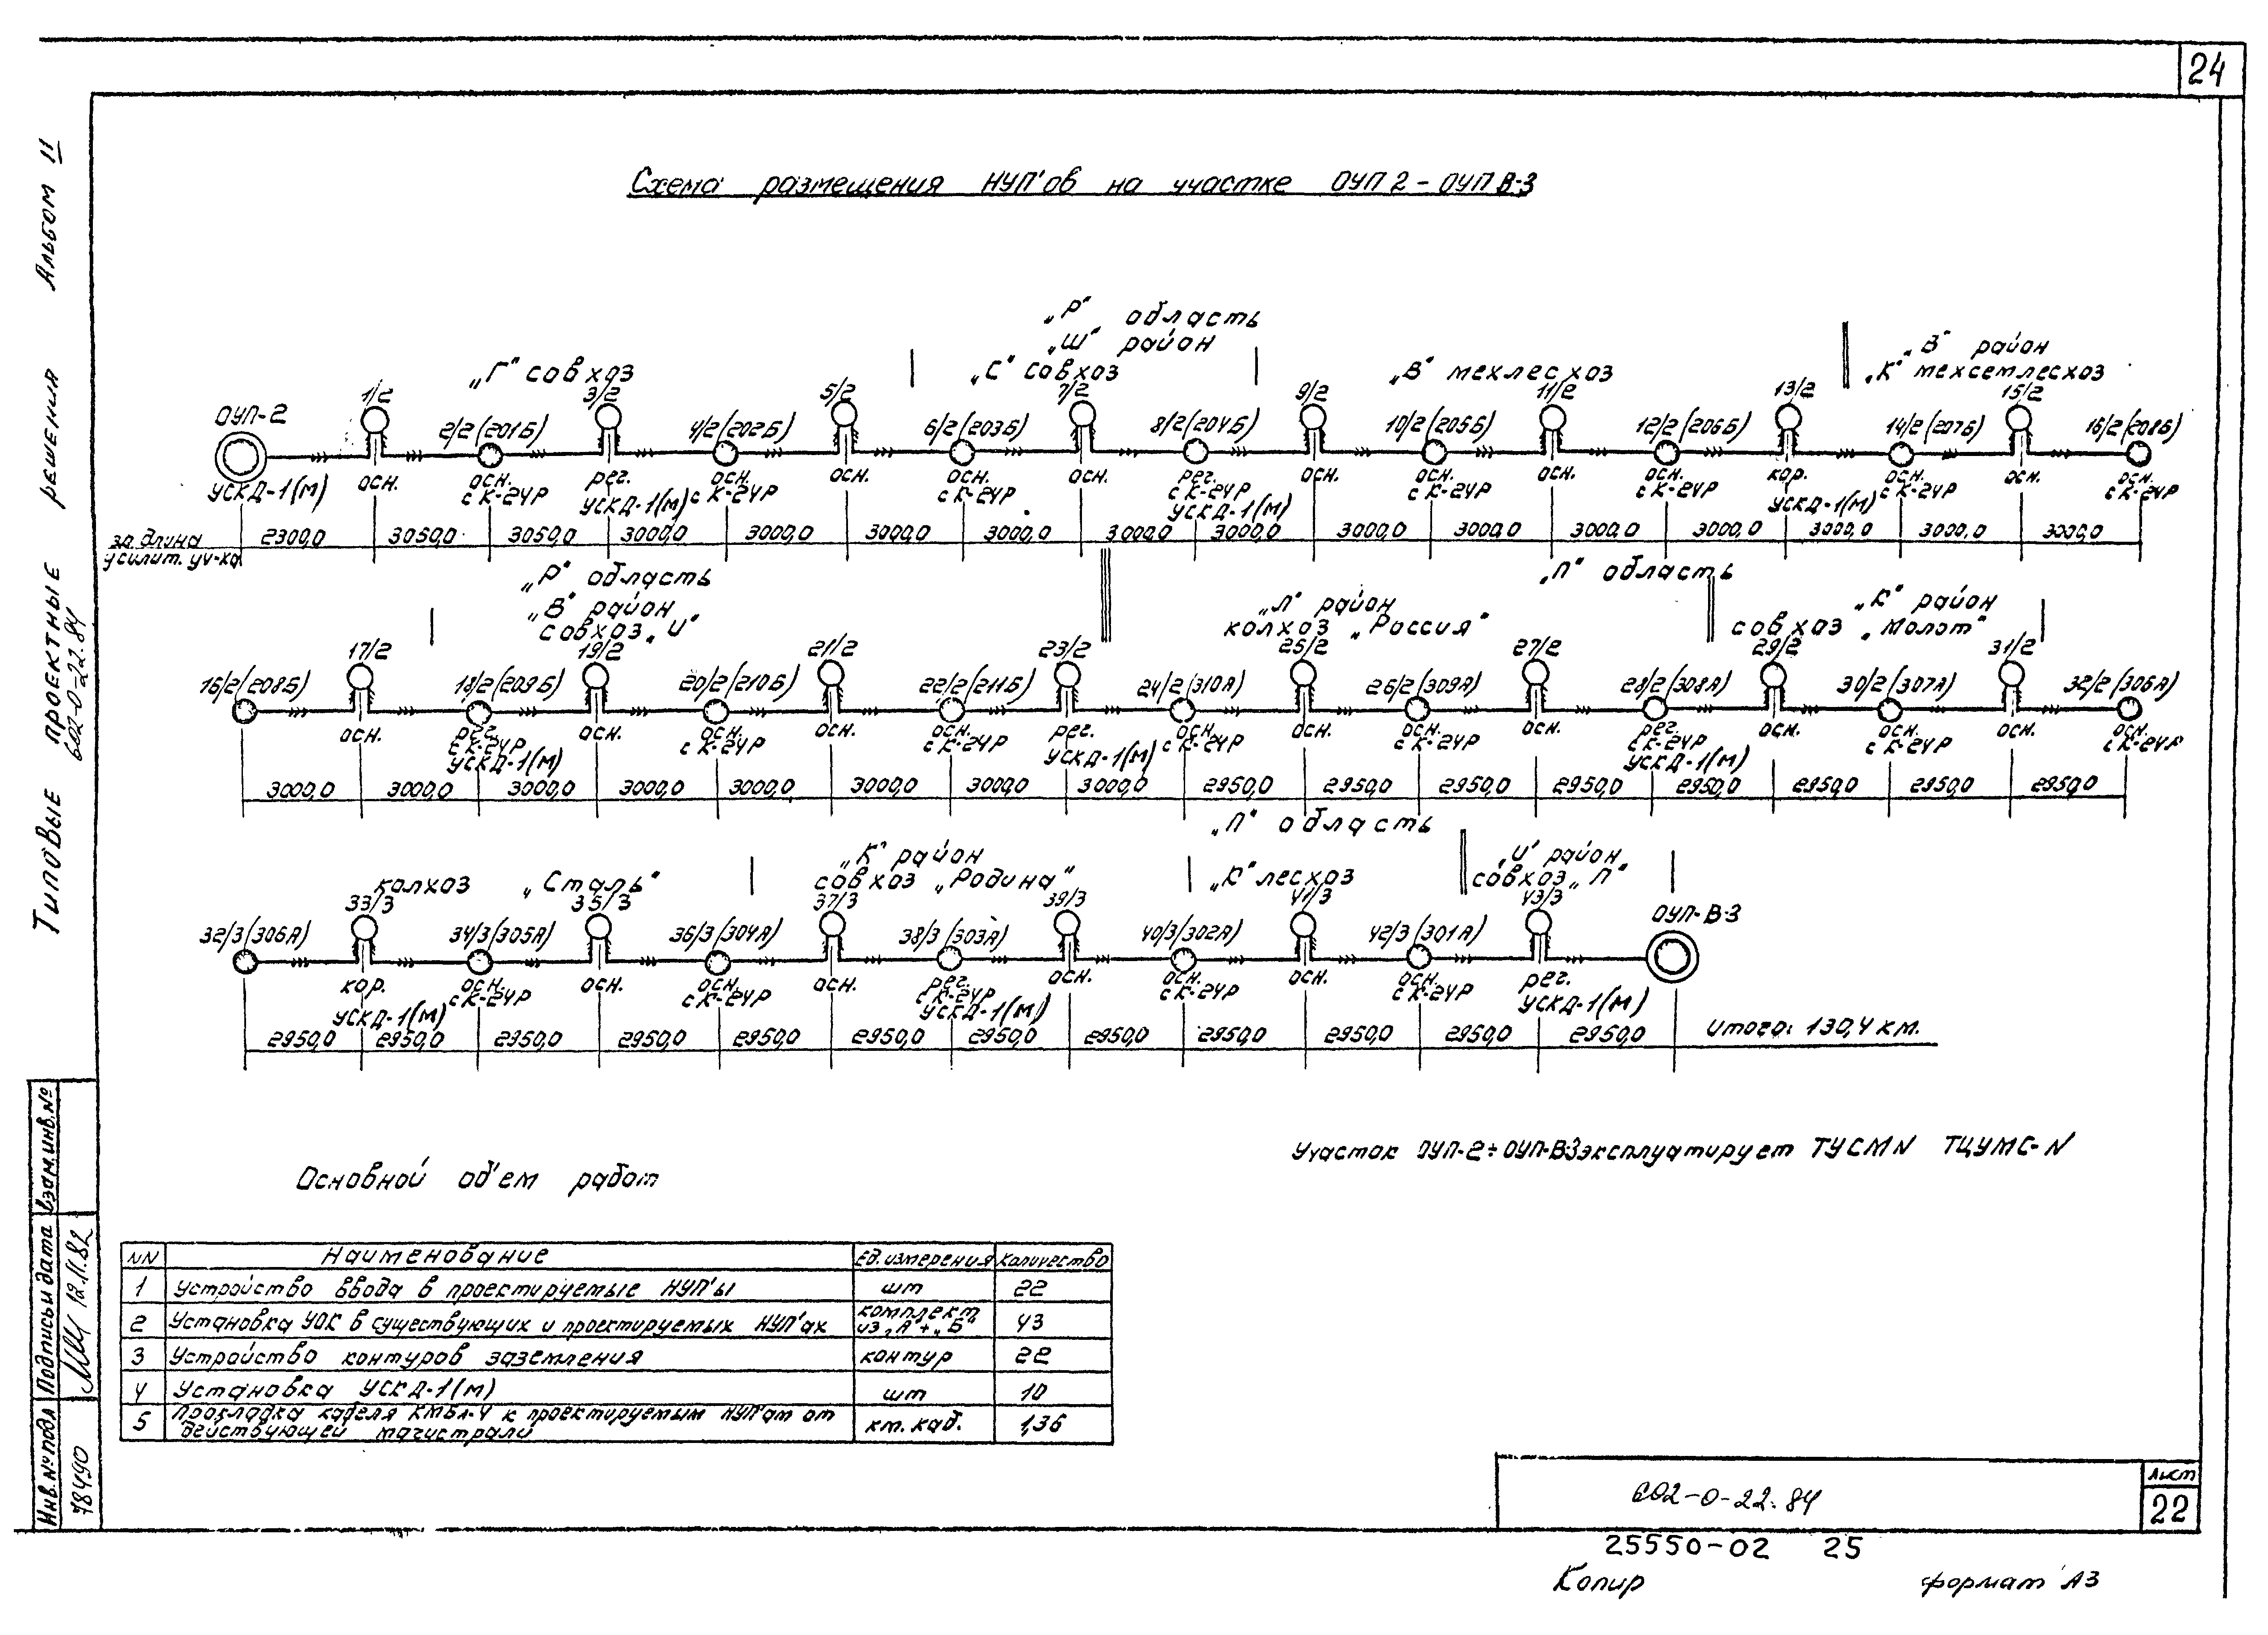 24
Типовые проектные решения Альбом II
602-0-22.84
Схема размещения НУП'ов на участке ОУП 2 - ОУП В-3
„Р" область
„Ш" район
„В" район
„Г" совхоз „С" совхоз „В" мехлесхоз „К" мехсемлесхоз
1/2 3/2 5/2 7/2 9/2 11/2 13/2 15/2
ОУП-2 2/2 (201Б) 4/2 (202Б) 6/2 (203Б) 8/2 (204Б) 10/2 (205Б) 12/2 (206Б) 14/2 (207Б) 16/2 (208Б)
УСКД-1(М) осн. осн. рег. осн. осн. осн. осн. рег. осн. осн. осн. осн. кор. осн. осн. осн.
с К-24Р УСКД-1(М) с К-24Р с К-24Р с К-24Р с К-24Р с К-24Р УСКД-1(М) с К-24Р с К-24Р
УСКД-1(М)
за длина
усилит. уч-ка
2300,0 3050,0 3050,0 3000,0 3000,0 3000,0 3000,0 3000,0 3000,0 3000,0 3000,0 3000,0 3000,0 3000,0 3000,0 3000,0
„Р" область „П" область
„В" район „Л" район „К" район
совхоз „И" колхоз „Россия" совхоз „Молот"
17/2 19/2 21/2 23/2 25/2 27/2 29/2 31/2
16/2 (208Б) 18/2 (209Б) 20/2 (210Б) 22/2 (211Б) 24/2 (310А) 26/2 (309А) 28/2 (308А) 30/2 (307А) 32/2 (306А)
осн. рег. осн. осн. осн. осн. рег. осн. осн. осн. осн. рег. осн. осн. осн. осн.
с К-24Р с К-24Р с К-24Р УСКД-1(М) с К-24Р с К-24Р с К-24Р с К-24Р с К-24Р
УСКД-1(М) УСКД-1(М)
3000,0 3000,0 3000,0 3000,0 3000,0 3000,0 3000,0 3000,0 2950,0 2950,0 2950,0 2950,0 2950,0 2950,0 2950,0 2950,0
„П" область
„К" район „И" район
колхоз „Сталь" совхоз „Родина" „К" лесхоз совхоз „П"
33/3 35/3 37/3 39/3 41/3 43/3
32/3 (306А) 34/3 (305А) 36/3 (304А) 38/3 (303А) 40/3 (302А) 42/3 (301А) ОУП-В-3
кор. осн. осн. осн. осн. рег. осн. осн. осн. осн. рег.
УСКД-1(М) с К-24Р с К-24Р с К-24Р с К-24Р с К-24Р УСКД-1(М)
УСКД-1(М)
2950,0 2950,0 2950,0 2950,0 2950,0 2950,0 2950,0 2950,0 2950,0 2950,0 2950,0 2950,0 Итого: 130,4 км.
Участок ОУП-2÷ОУП-В-3 эксплуатирует ТУСМN ТЦУМС-N
Основной об'ем работ
NN Наименование Ед. измерения Количество
1 Устройство ввода в проектируемые НУП'ы шт 22
2 Установка УОК в существующих и проектируемых НУП'ах комплект из „А"+„Б" 43
3 Устройство контуров заземления контур 22
4 Установка УСКД-1(М) шт 10
5 Прокладка кабеля КМБл-4 к проектируемым НУП'ам от действующей магистрали км. каб. 1,36
Инв. № подл Подпись и дата Взам.инв.№
78490 12.11.82
602-0-22.84
Лист
22
25550-02 25
Копир формат А3